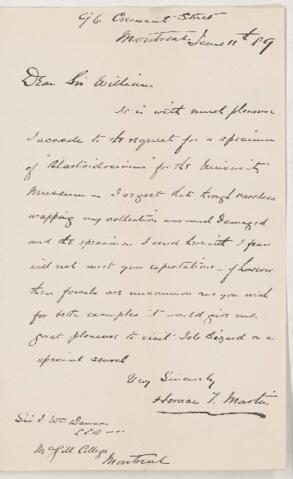 96 Crescent Street
Montreal June 11th 89
Dear Sir William
It is with much pleasure
I accede to the request for a specimen
of "Blastoidocrinus" for the University
Museum - I regret that through careless
wrapping my collection was much damaged
and the specimen I send herewith I fear
will not meet your expectations - If however
these fossils are uncommon and you wish
for better examples it would give me
great pleasure to visit Isle Bizard on a
special search
Very Sincerely
Horace T. Martin
Sir J. Wm Dawson
LLD
McGill College
Montreal